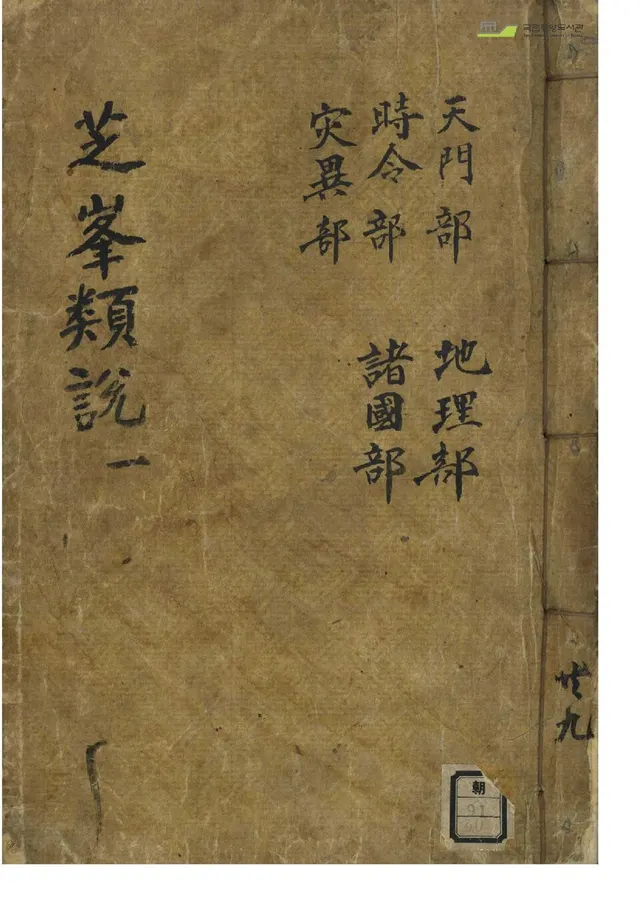 天門部
地理部
時令部
諸國部
灾異部
芝峯類說 一
共九
朝
91
국립중앙도서관